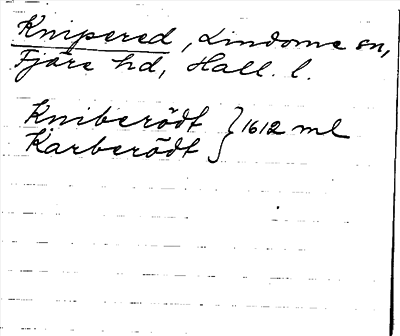 Knipered, Lindome sn,
Fjäre hd, Hall. l.
Kniberödt } 1612 ml
Karberödt